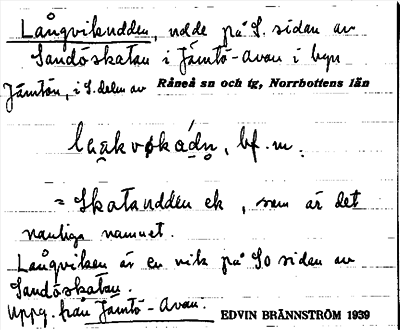 Långviksudden, udde på S. sidan av
Sandöskatan i Jämtö-Avan i byn
Jämtön, i S. delen av Råneå sn och tg, Norrbottens län
bf. m.
= Skatanudden ek, som är det
vanliga namnet.
Långviken är en vik på SO sidan av
Sandöskatan.
Uppg. från Jämtö-Avan.
EDVIN BRÄNNSTRÖM 1939